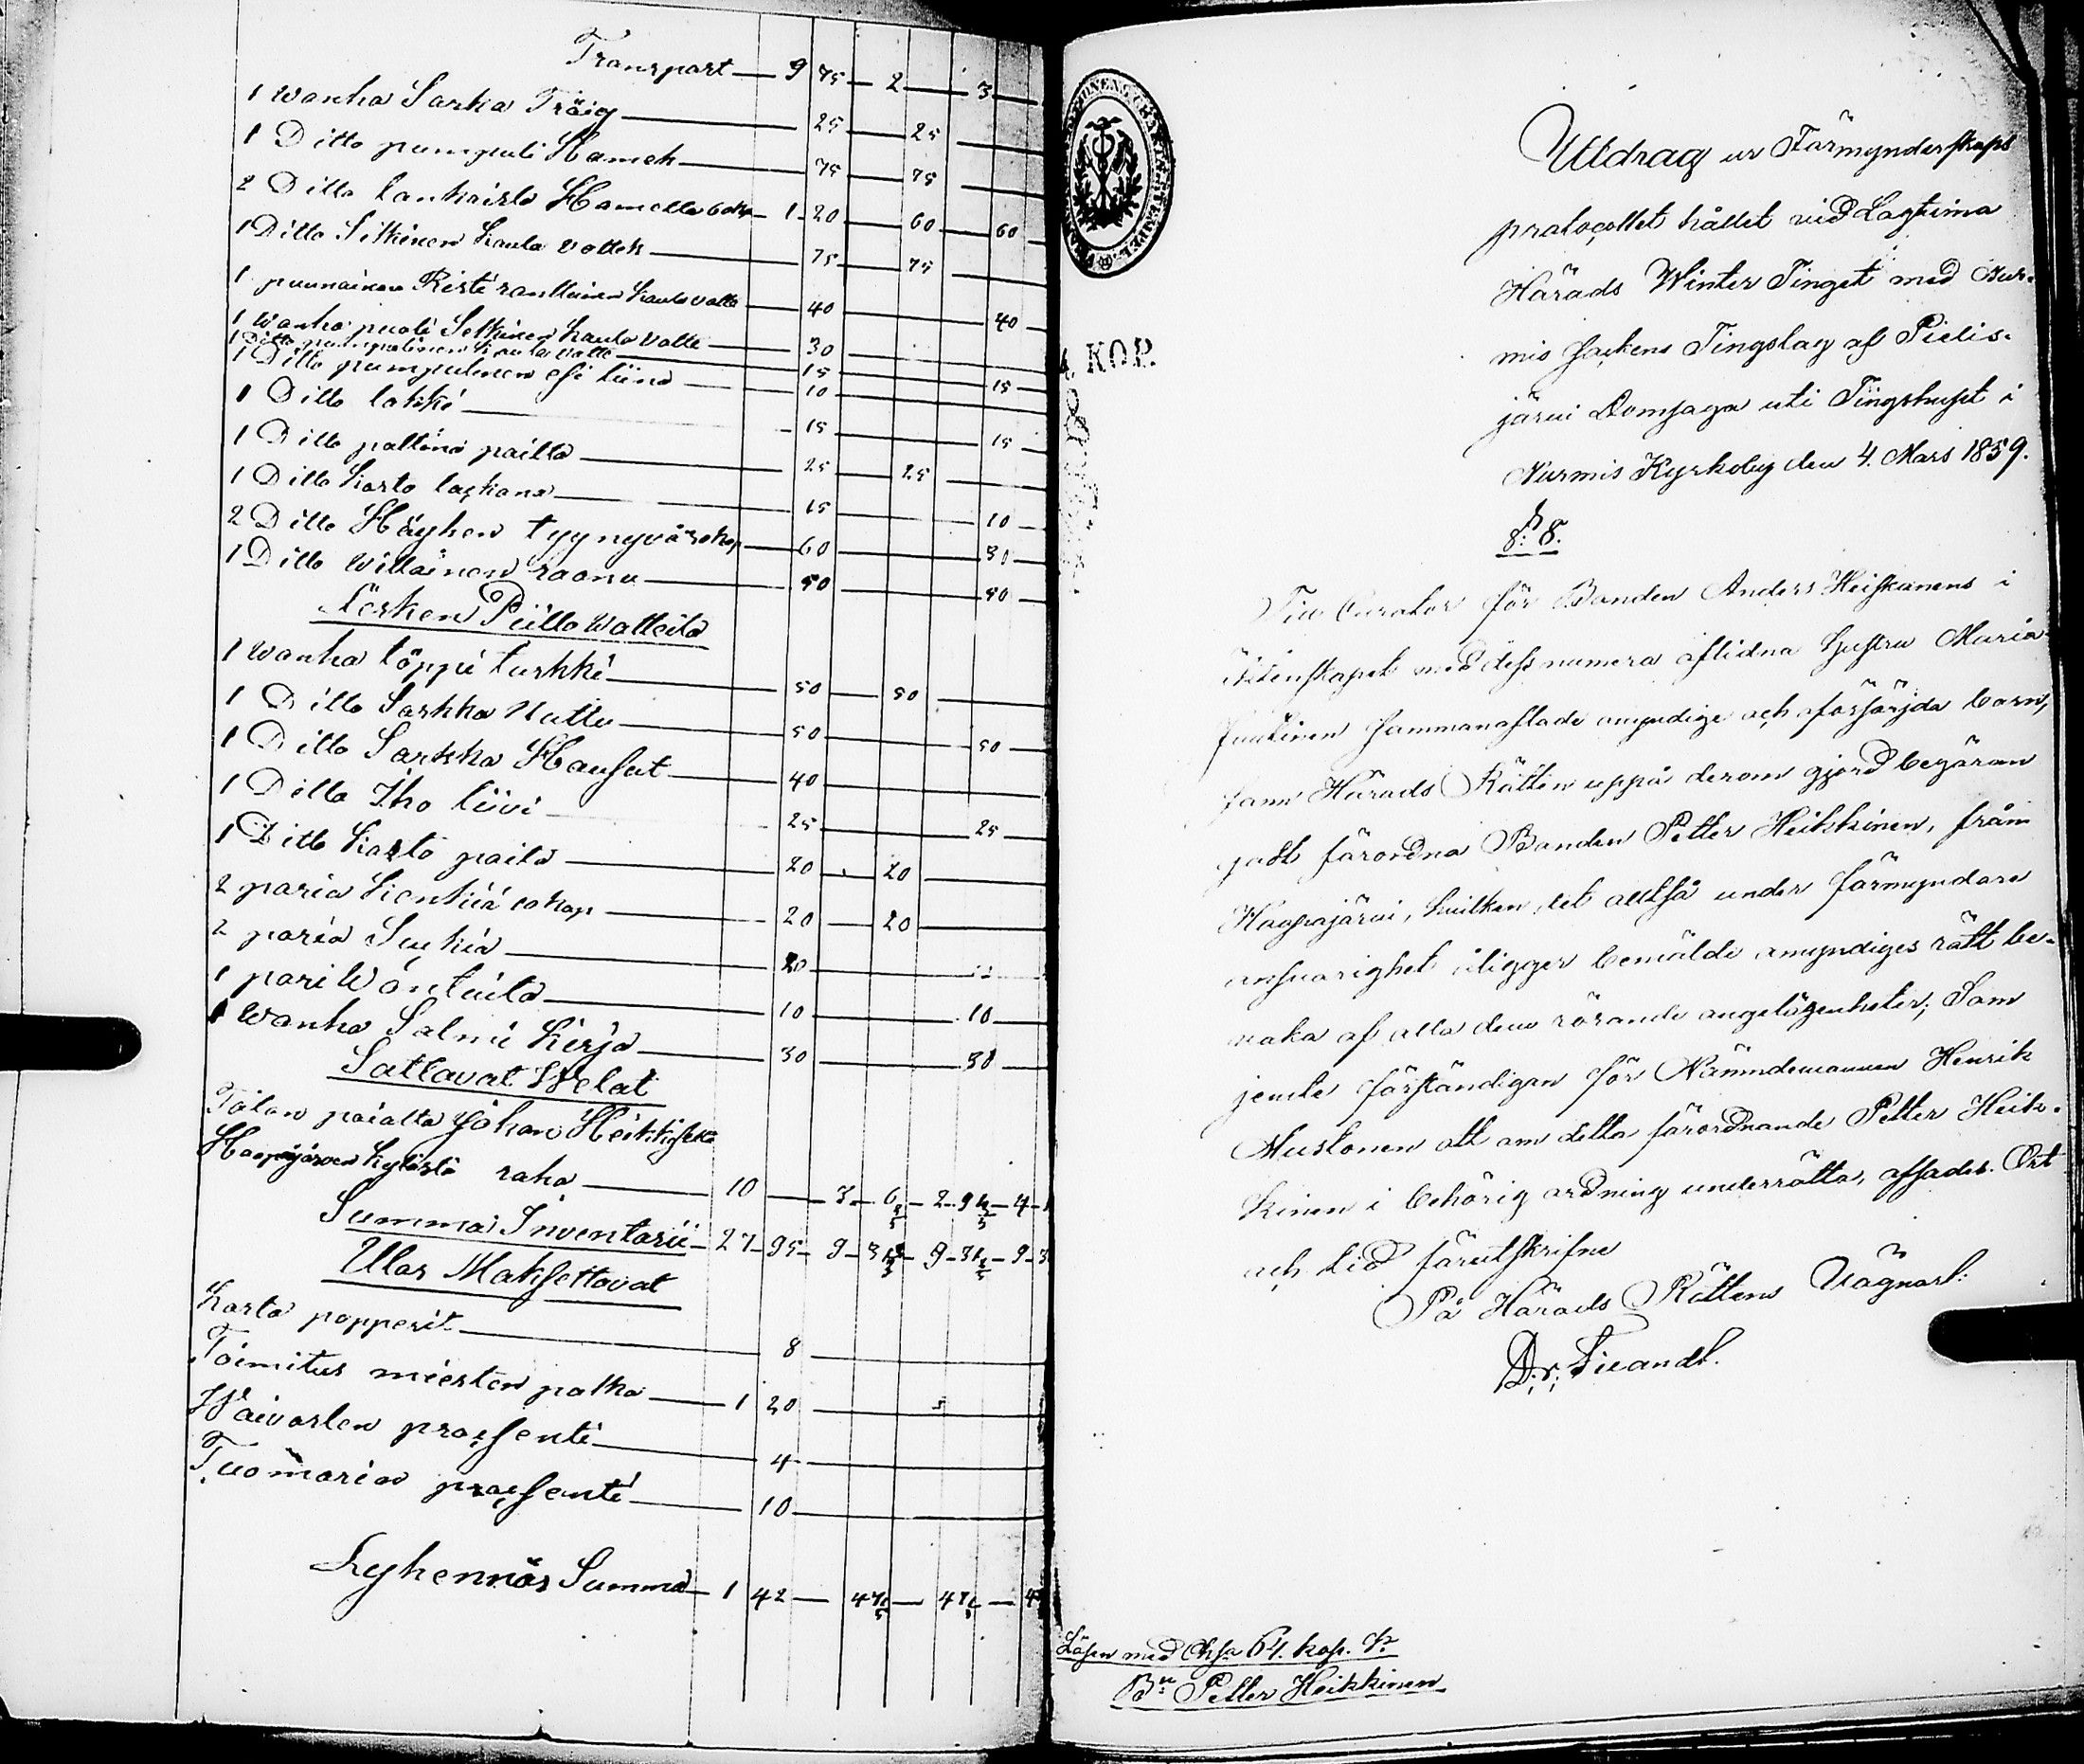 Transport 9 75 2 3
1 Wanha Sarka Tröig 25 25
1 Ditto pumpuli Hameh 75 75
2 Ditto lankaista Hametta 60 k 1 20 60 60
1 Ditto Silkinen Kaula vatteh 75 75
1 punainen Risti rantuinen kaula vatte 40 40
1 Wanha puoli Silkinen kaula vatte 30
1 Ditto pumpulinen kaula vatte 15 15
1 Ditto pumpulinen esi liina 10
1 Ditto lakki 15 15
1 Ditto palttina paitta 25 25
1 Ditto Karto lackana 15 10
2 Ditto Höyhen tyynyvä 30 kop 60 30
1 Ditto Willainen raanu 50 50
Lesken Piältä Watteita
1 Wanha töppi turkki 50 50
1 Ditto Sarkka Nuttu 50 50
1 Ditto Sarkka Hausut 40
1 Ditto Iho liivi 25 25
1 Ditto Karto paita 20 20
2 paria Kenkiä 10 kop 20 20
2 paria Suckia 20
1 pari Wöntuita 10 10
1 Wanha Salmi Kirja 30 30
Sattavat Welat
Talan päialta Johan Heikkiseltä
Haapajärven kylästä raha 10 3 6 2 9 4
Summa Inventarii 27 95 9 31 9 31 9 3
Ulos Maksettavat
Karta papperit 8
Toimitus miesten palka 1 20
Waivasten præsenti 4
Tuomarin præsenti 10
Lyhennös Summa 1 42 47 47 4
4. KOP.
Utdrag ur Förmynderskaps
protocollet hållet vid Lagtima
Härads Winter Tinget med Nur-
mis Sockens Tingslag af Pielis-
järvi Domsaga uti Tingshuset i
Nurmis Kyrkoby den 4. Mars 1859.
§: 8.
Till Curator för Bonden Anders Heiskanens i
äktenskapet med dess numera aflidna hustru Maria
Juutinen sammanaflade omyndige och oförsörjda barn,
fann Härads Rätten uppå derom gjord begäran
godt förordna Bonden Petter Heikkinen, från
Haapajärvi, hvilken det alltså under förmyndare
ansvarighet åligger bemälde omyndiges rätt be-
vaka af alla dem rörande angelägenheter; Som
jemte förständigan för Nämndemannen Henrik
Mustonen att om detta förordnande Petter Heik-
kinen i behörig ordning underrätta, afsades. Ort
och tid förutskrifne
På Härads Rättens Vägnar:
Lösen med Chsa 64. kop. Sr
Bn Petter Heikkinen